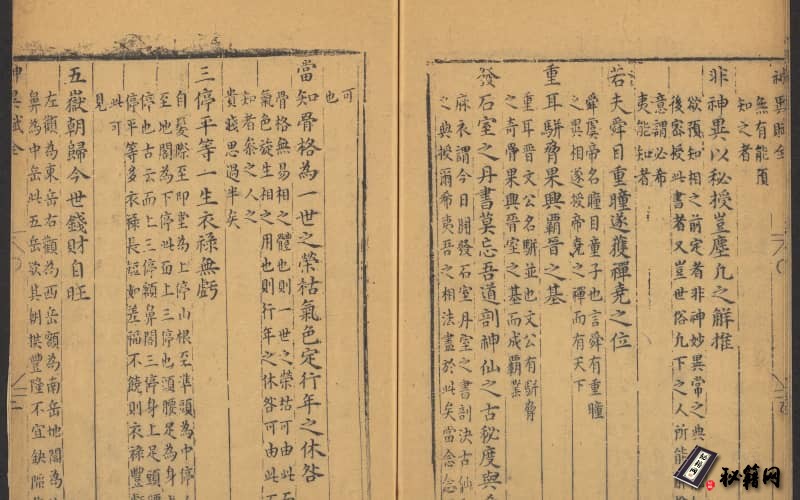 神異賦全
無有能預
知之者
非神異以秘授豈塵凡之解推
欲預知相之前定者非神妙異常之典
後密授此書者又豈世俗凡下之人所能
意謂必希
夷能知者
若夫舜目重瞳遂獲禪堯之位
舜虞帝名瞳目童子也言舜有重瞳
之異相遂授帝堯之禪而有天下
重耳駢脅果興覇晉之基
重耳晉文公名駢並也文公有駢脅
之奇骨果興晉室之基而成覇業
發石室之丹書莫忘吾道剖神仙之古秘度與
麻衣謂今日開發石室丹室之書剖決古仙
之典授爾希夷吾之相法盡於此矣當念
可
也
當知骨格為一世之榮枯氣色定行年之休咎
骨格無易相之體也則一世之榮枯可由此
氣色旋生相之用也則行年之休咎可由此
知者泰之人之
貴賤思過半矣
三停平等一生衣祿無虧
自髮際至印堂為上停山根至準頭為中停
至地閣為下停此面上三停也頭腰足為身
停也古云面上三停額鼻閣三停身上足頭
停平等多衣祿長短如差福不饒則衣祿豐
此可
見
五嶽朝歸今世錢財自旺
左顴為東岳右顴為西岳額為南岳地閣為
鼻為中岳此五岳欲其朝拱豐隆不宜缺陷
神異賦全
秘籍网